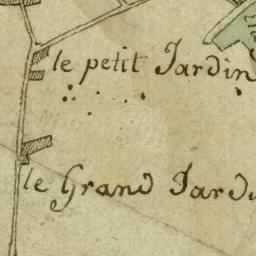 le petit Jardin
le Grand Jardi